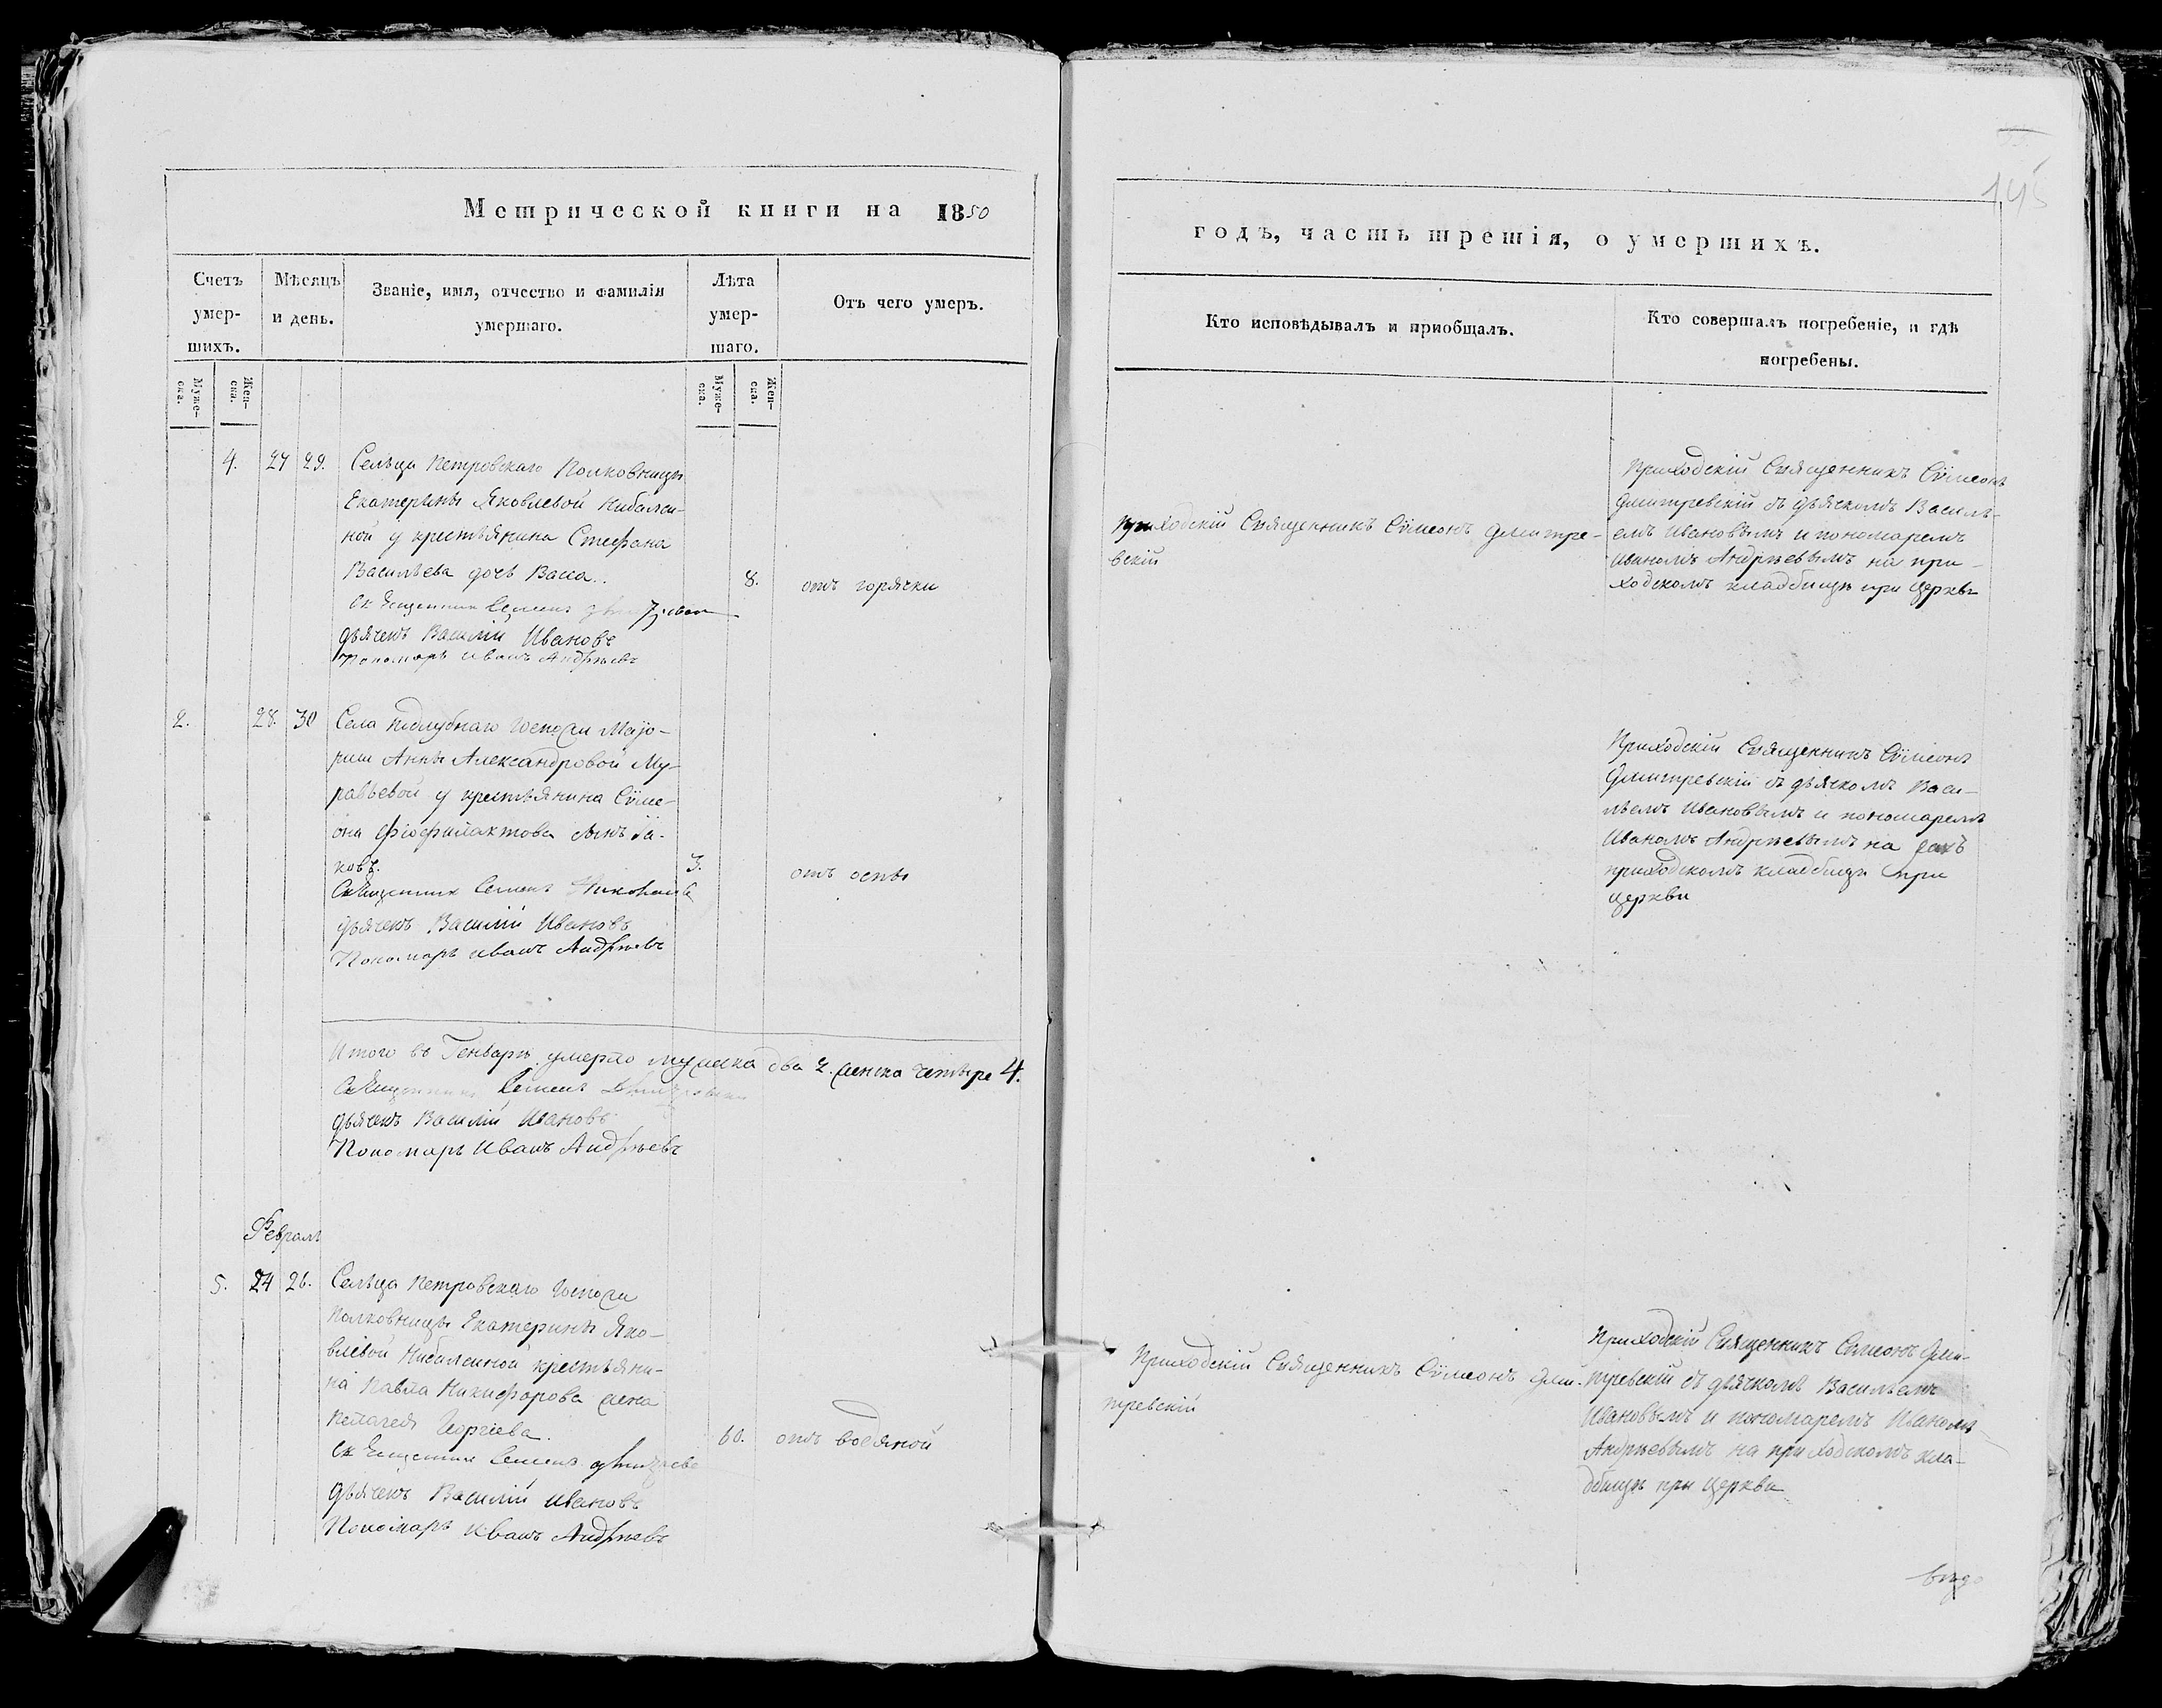 145
Метрической книги на 1850
годъ, часть третія, о умершихъ.
Счетъ умер-шихъ.
Мѣсяцъ и день.
Званіе, имя, отчество и фамилія умершаго.
Лѣта умер-шаго.
Отъ чего умеръ.
Кто исповѣдывалъ и приобщалъ.
Кто совершалъ погребеніе, и гдѣ погребены.
Муже-ска.
Жен-ска.
Муже-ска.
Жен-ска.
4. 27 29.
Сельца Петровскаго Полковницы
Екатерины Яковлевой
ной у крестьянина Стефана
Васильева дочь Васса.
8. отъ горячки
Священник Семенъ
дьячекъ Василій Ивановъ
Пономарь Иванъ Андрѣевъ
Приходскій Священникъ Сѵмеонъ Дмитре-
вскій
Приходскій Священникъ Сѵмеонъ
Дмитревскій съ дьячкомъ Василь-
емъ Ивановымъ и пономаремъ
Иваномъ Андрѣевымъ на при-
ходскомъ кладбищѣ при церкви
2. 28. 30
Села Госпожи Маіо-
рши Анны Александровой Му-
равьевой у крестьянина Сѵме-
она Фіофилактова сынъ Іа-
ковъ.
3. отъ оспы
Священник Семенъ
дьячекъ Василій Ивановъ
Пономарь Иванъ Андрѣевъ
Приходскій Священникъ Сѵмеонъ
Дмитревскій съ дьячкомъ Васи-
льемъ Ивановымъ и пономаремъ
Иваномъ Андрѣевымъ на
приходскомъ кладбищѣ при
церкви
Итого въ Генварѣ умерло мужеска два 2. женска четыре 4.
Священник Семенъ
дьячекъ Василій Ивановъ
Пономарь Иванъ Андрѣевъ
Февраль
5. 24 26.
Сельца Петровскаго Госпожи
Полковницы Екатерины Яко-
влевой крестьяни-
на Павла Никифорова жена
Пелагея Георгіева.
60. отъ водяной
Священник Семенъ
дьячекъ Василій Ивановъ
Пономарь Иванъ Андрѣевъ
Приходскій Священникъ Сѵмеонъ Дми-
тревскій
Приходскій Священникъ Сѵмеонъ Дми-
тревскій съ дьячкомъ Васильемъ
Ивановымъ и пономаремъ Иваномъ
Андрѣевымъ на приходскомъ кла-
дбищѣ при церкви